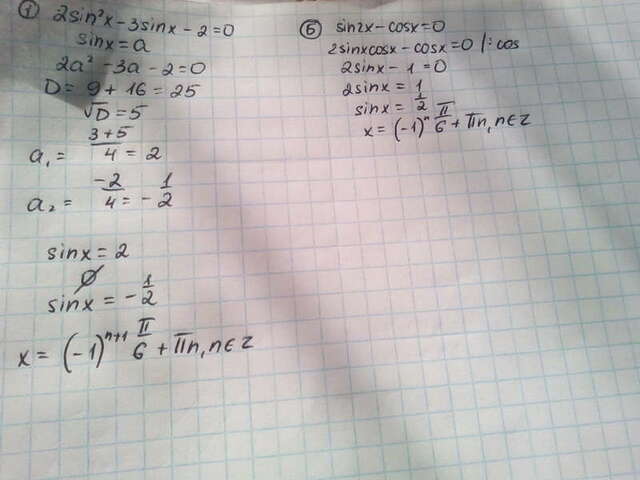 ① 2sin²x - 3sinx - 2 = 0
sinx = a
2a² - 3a - 2 = 0
D = 9 + 16 = 25
√D = 5
a₁ = (3+5)/4 = 2
a₂ = -2/4 = -1/2
sinx = 2
∅
sinx = -1/2
x = (-1)ⁿ⁺¹ π/6 + πn, n ∈ Z
Б sin2x - cosx = 0
2sinxcosx - cosx = 0 /: cos
2sinx - 1 = 0
2sinx = 1
sinx = 1/2
x = (-1)ⁿ π/6 + πn, n ∈ Z